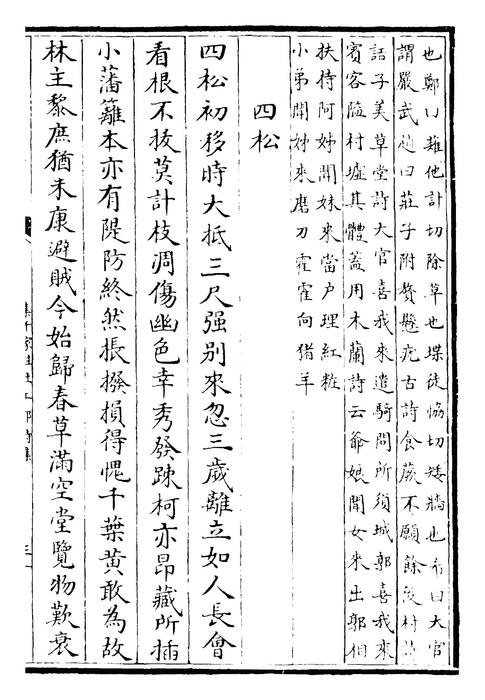 也鄭曰薙他計切除草也堞徒協切矮牆也希曰大官
謂嚴武趙曰莊子附贅懸疣古詩食蕨不願餘後村詩
話子美草堂詩大官喜我來遣騎問所須城郭喜我來
賓客隘村墟其體蓋用木蘭詩云爺娘聞女來出郭相
扶持阿姊聞妹來當户理紅粧
小弟聞姊來磨刀霍霍向猪羊
四松
四松初移時大抵三尺强别來忽三歲離立如人長會
看根不拔莫計枝凋傷幽色幸秀發踈柯亦昂藏所插
小藩籬本亦有隄防終然掁撥損得愧千葉黄敢為故
林主黎庶猶未康避賊今始歸春草滿空堂覽物歎衰